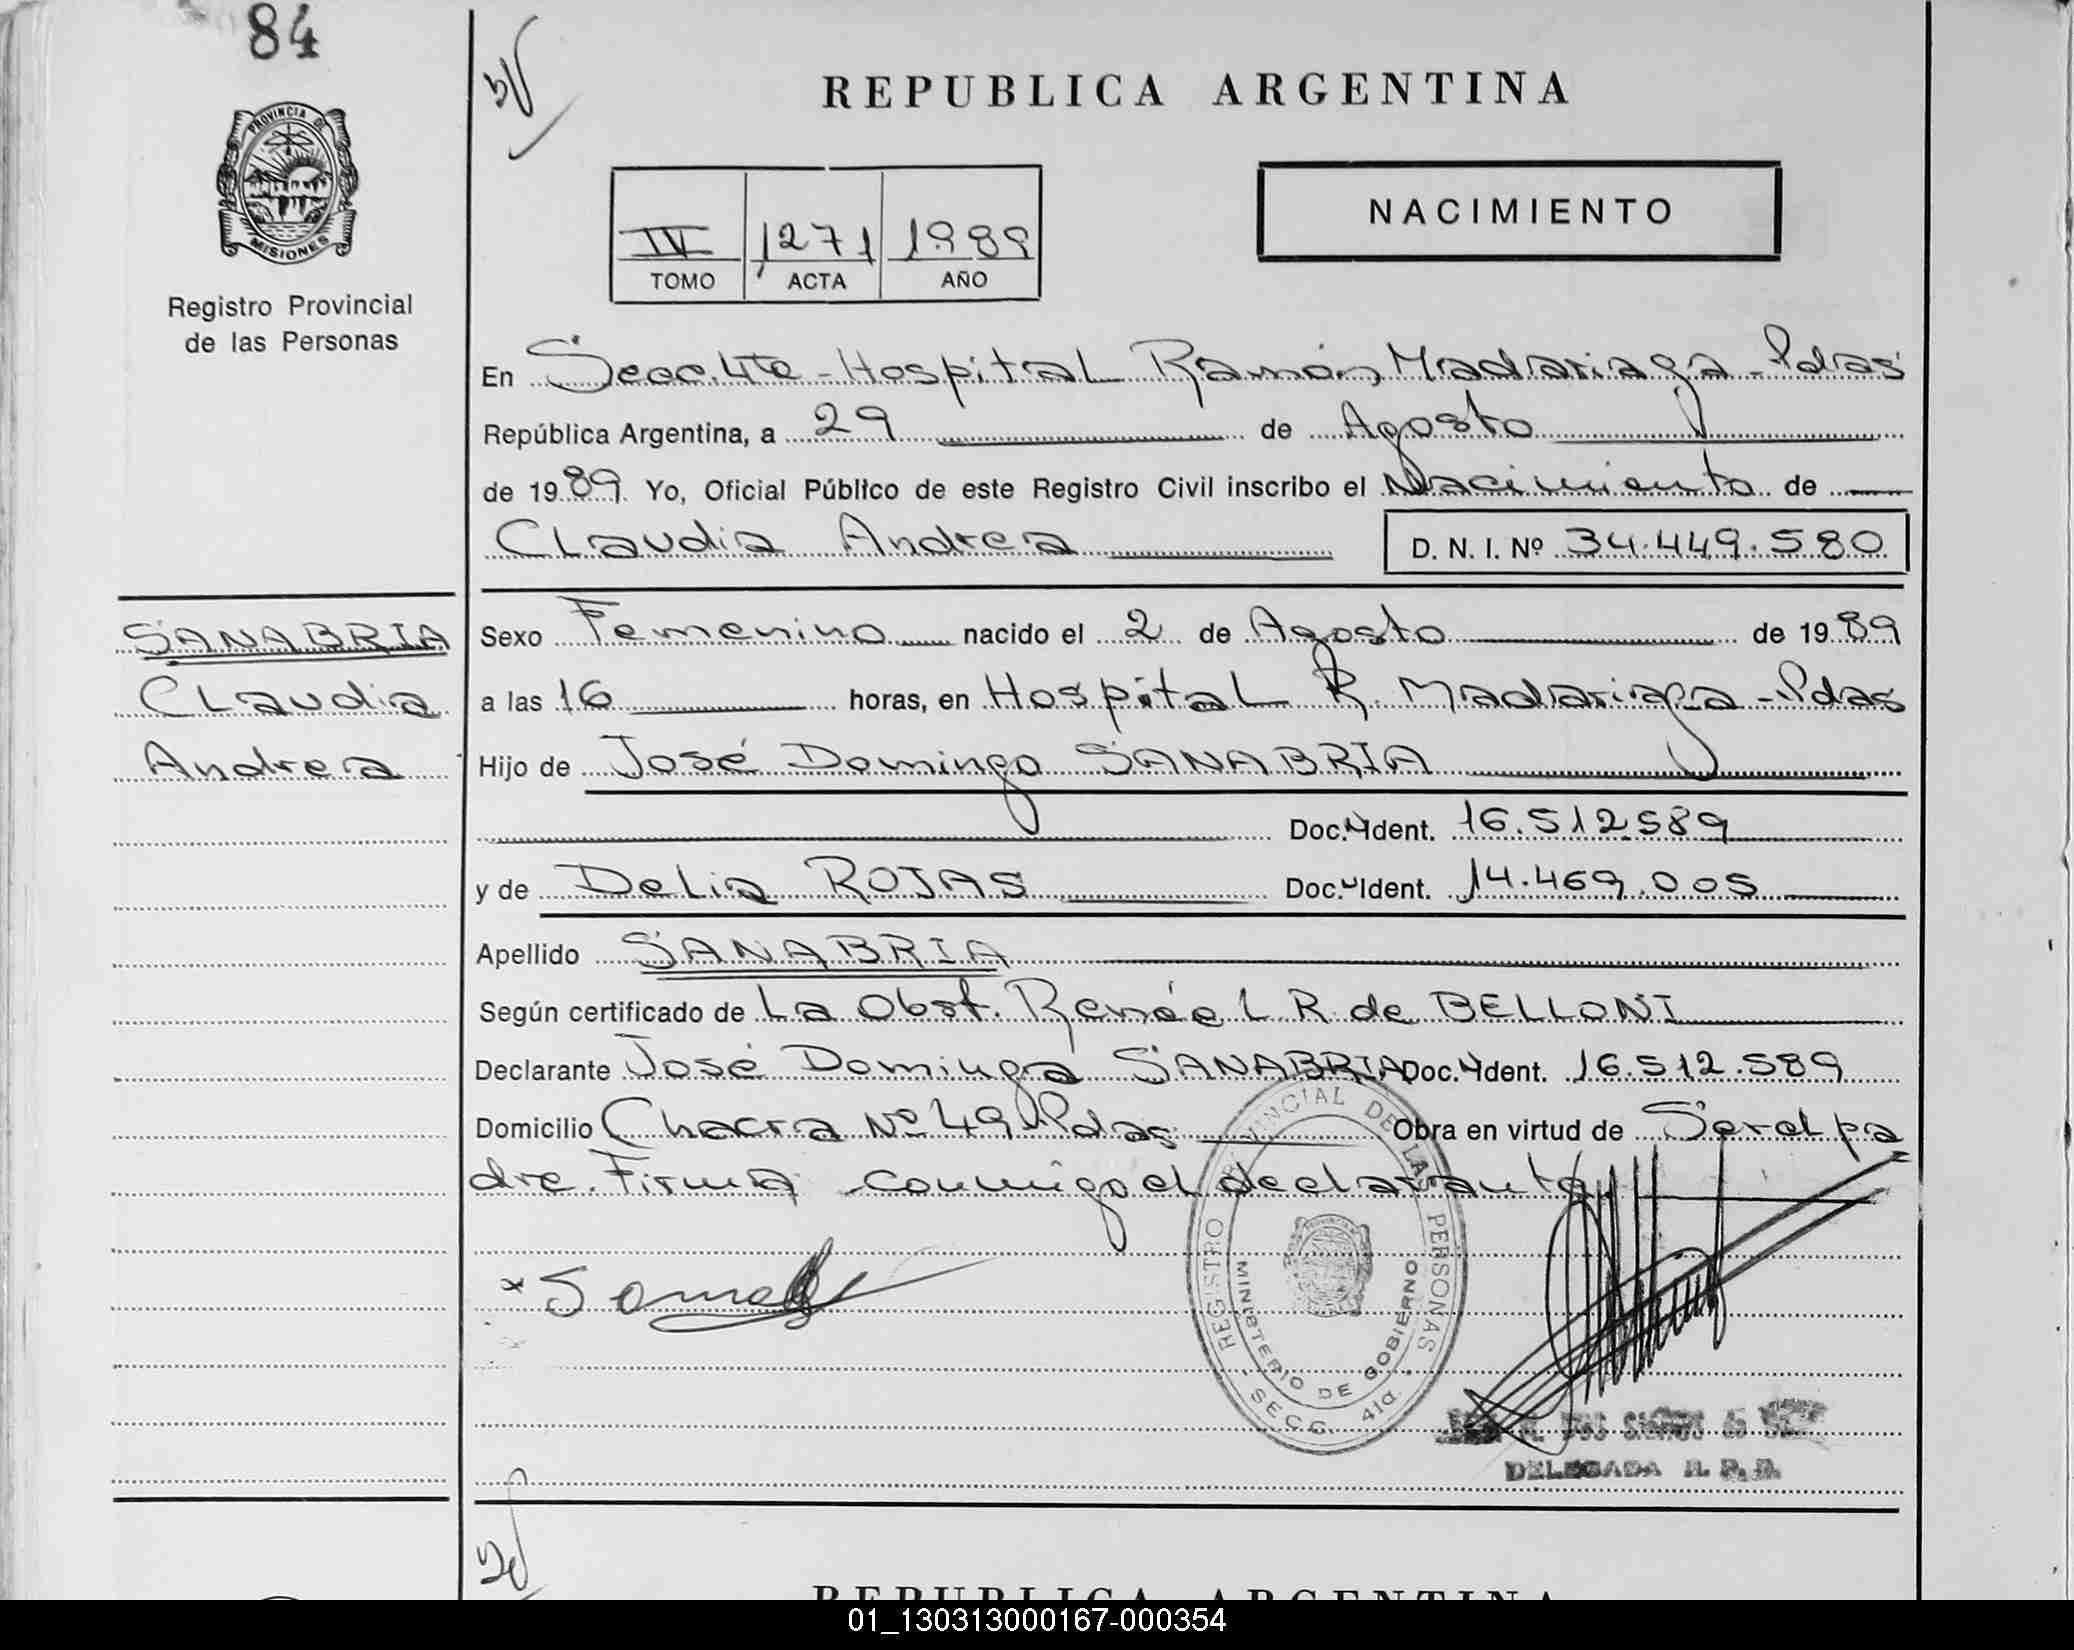 84
REPUBLICA ARGENTINA
PROVINCIA DE
MISIONES
Registro Provincial
de las Personas
NACIMIENTO
IV 1271 1989
TOMO ACTA AÑO
En Secc. 4ta - Hospital Ramón Madariaga - Pdas
República Argentina, a 29 de Agosto
de 1989 Yo, Oficial Público de este Registro Civil inscribo el Nacimiento de
Claudia Andrea D. N. I. Nº 34.449.580
SANABRIA
Claudia
Andrea
Sexo Femenino nacido el 2 de Agosto de 1989
a las 16 horas, en Hospital R. Madariaga - Pdas
Hijo de José Domingo SANABRIA
Doc. Ident. 16.512.589
y de Delia ROJAS Doc. Ident. 14.469.005
Apellido SANABRIA
Según certificado de La Obst. Renée L R. de BELLONI
Declarante José Domingo SANABRIA Doc. Ident. 16.512.589
Domicilio Chacra Nº 49 Pdas Obra en virtud de Ser el pa
dre. Firma conmigo el declarante
REGISTRO PROVINCIAL DE LAS PERSONAS
MINISTERIO DE GOBIERNO
SECC. 41a.
DELEGADA R. P. P.
REPUBLICA ARGENTINA
01_130313000167-000354